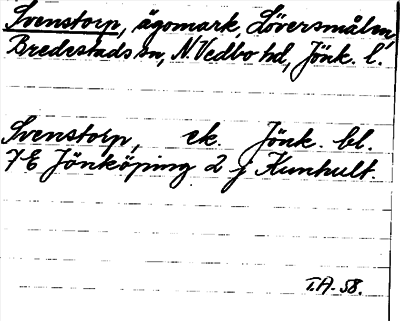 Svenstorp, ägomark, Löversmålen,
Bredestads sn, N. Vedbo hd, Jönk. l.
Svenstorp, ek. Jönk. bl.
7E Jönköping 2 j Kumhult.
T.A-58.